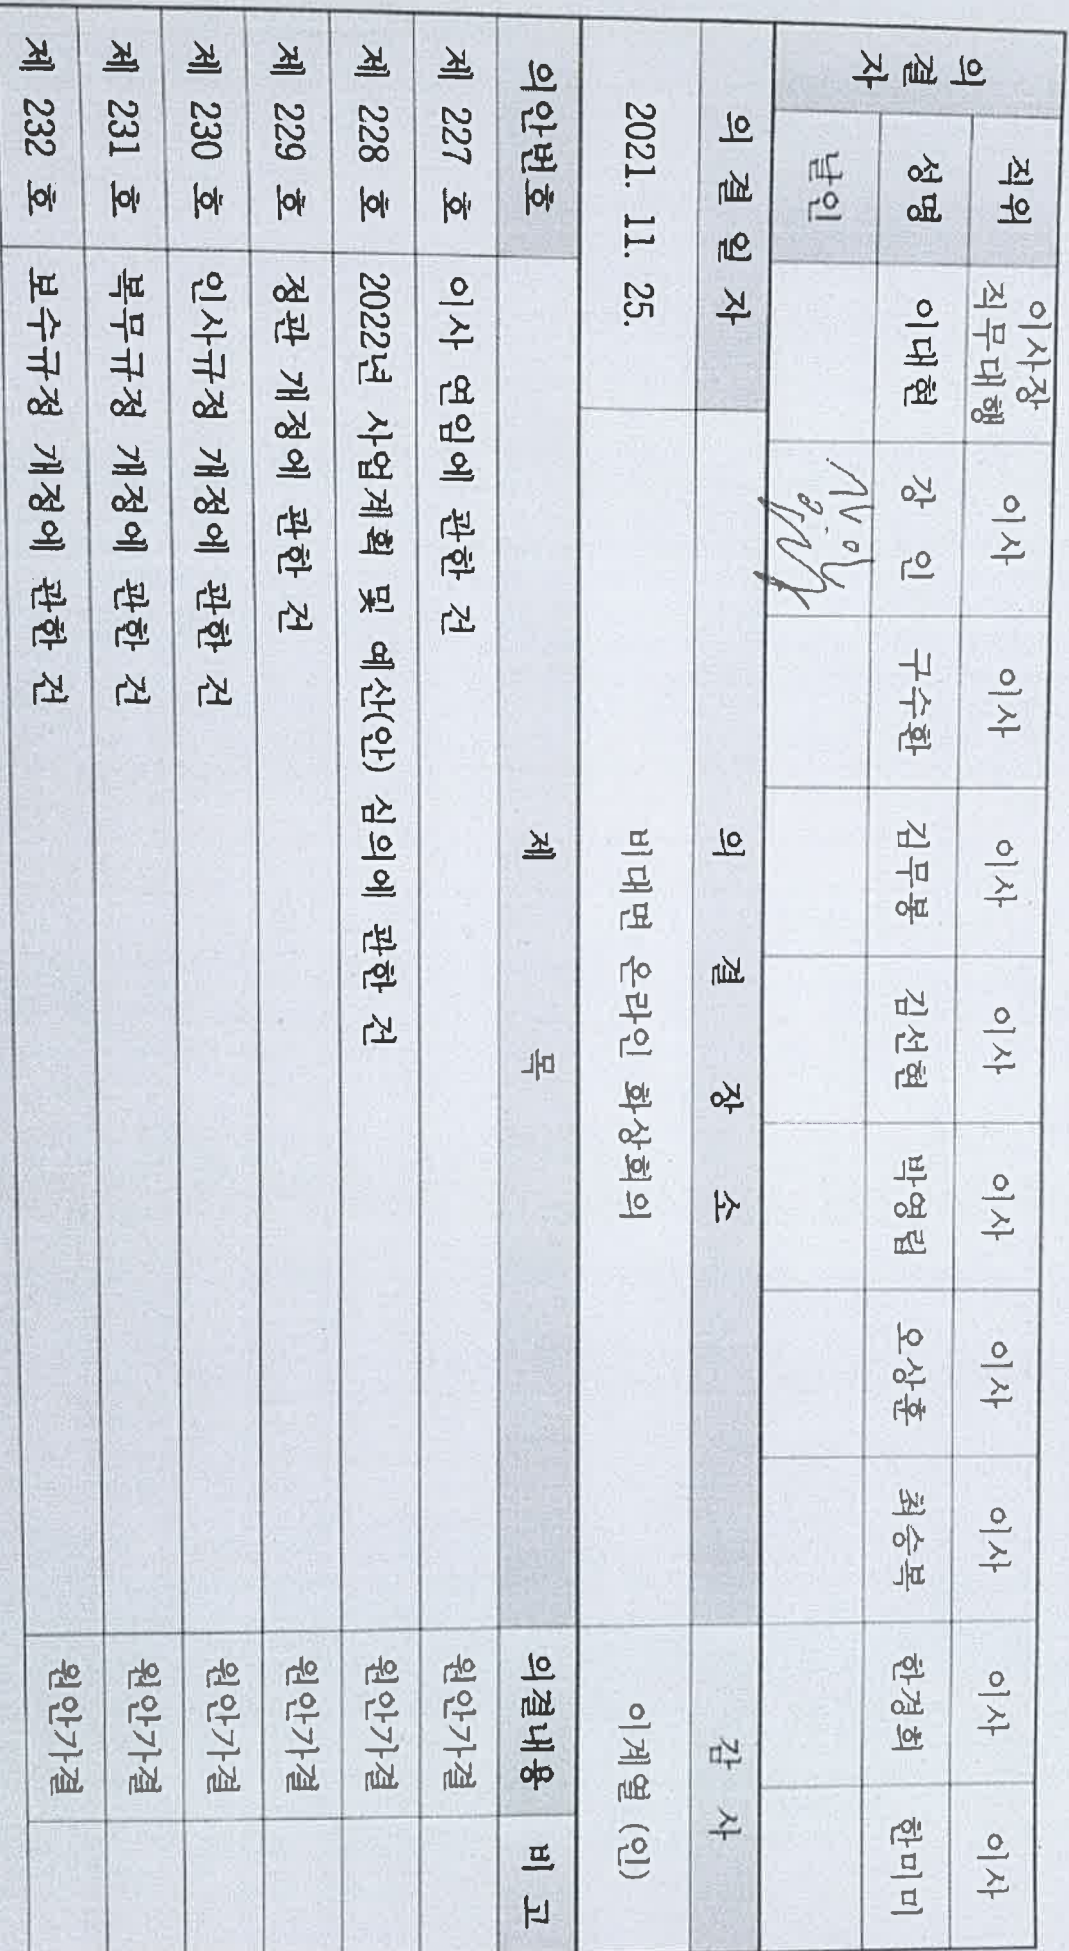 의결자 직위 이사장 직무대행 이사 이사 이사 이사 이사 이사 이사 이사 이사
성명 이대현 강 인 구수환 김무봉 김선현 박영립 오상훈 최승복 한경희 한미미
날인
의 결 일 자 의 결 장 소 감 사
2021. 11. 25. 비대면 온라인 화상회의 이계열 (인)
의안번호 제 목 의결내용 비 고
제 227 호 이사 연임에 관한 건 원안가결
제 228 호 2022년 사업계획 및 예산(안) 심의에 관한 건 원안가결
제 229 호 정관 개정에 관한 건 원안가결
제 230 호 인사규정 개정에 관한 건 원안가결
제 231 호 복무규정 개정에 관한 건 원안가결
제 232 호 보수규정 개정에 관한 건 원안가결